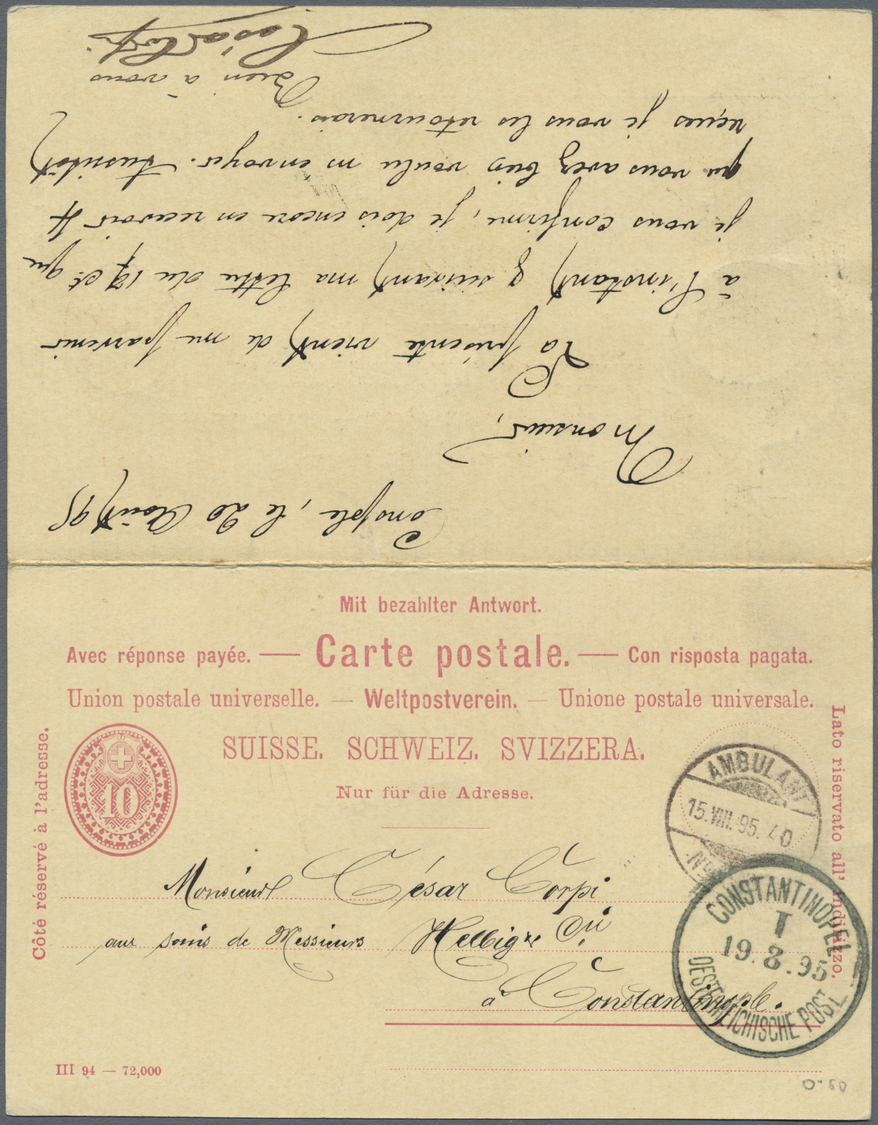 Mit bezahlter Antwort.
Avec réponse payée. — Carte postale. — Con risposta pagata.
Union postale universelle. — Weltpostverein. — Unione postale universale.
SUISSE. SCHWEIZ. SVIZZERA.
Nur für die Adresse.
Côté réservé à l'adresse.
Lato riservato all' indirizzo.
10
AMBULANT
15.VIII.95.
No
CONSTANTINOPEL
I
19.8.95
OESTERREICHISCHE POST
Monsieur César Corpi
aux soins de Messieurs Helbig & Cie
à Constantinople.
III 94 — 72,000
0.50
Conople, le 20 Août 95
Monsieur,
La présente vient de me parvenir
à l'instant & suivant ma lettre du 17 ct que
je vous confirme, je dois encore en recevoir 4
que vous avez bien voulu m envoyer. Aussitôt
reçues je vous les retournerai.
Bien à vous